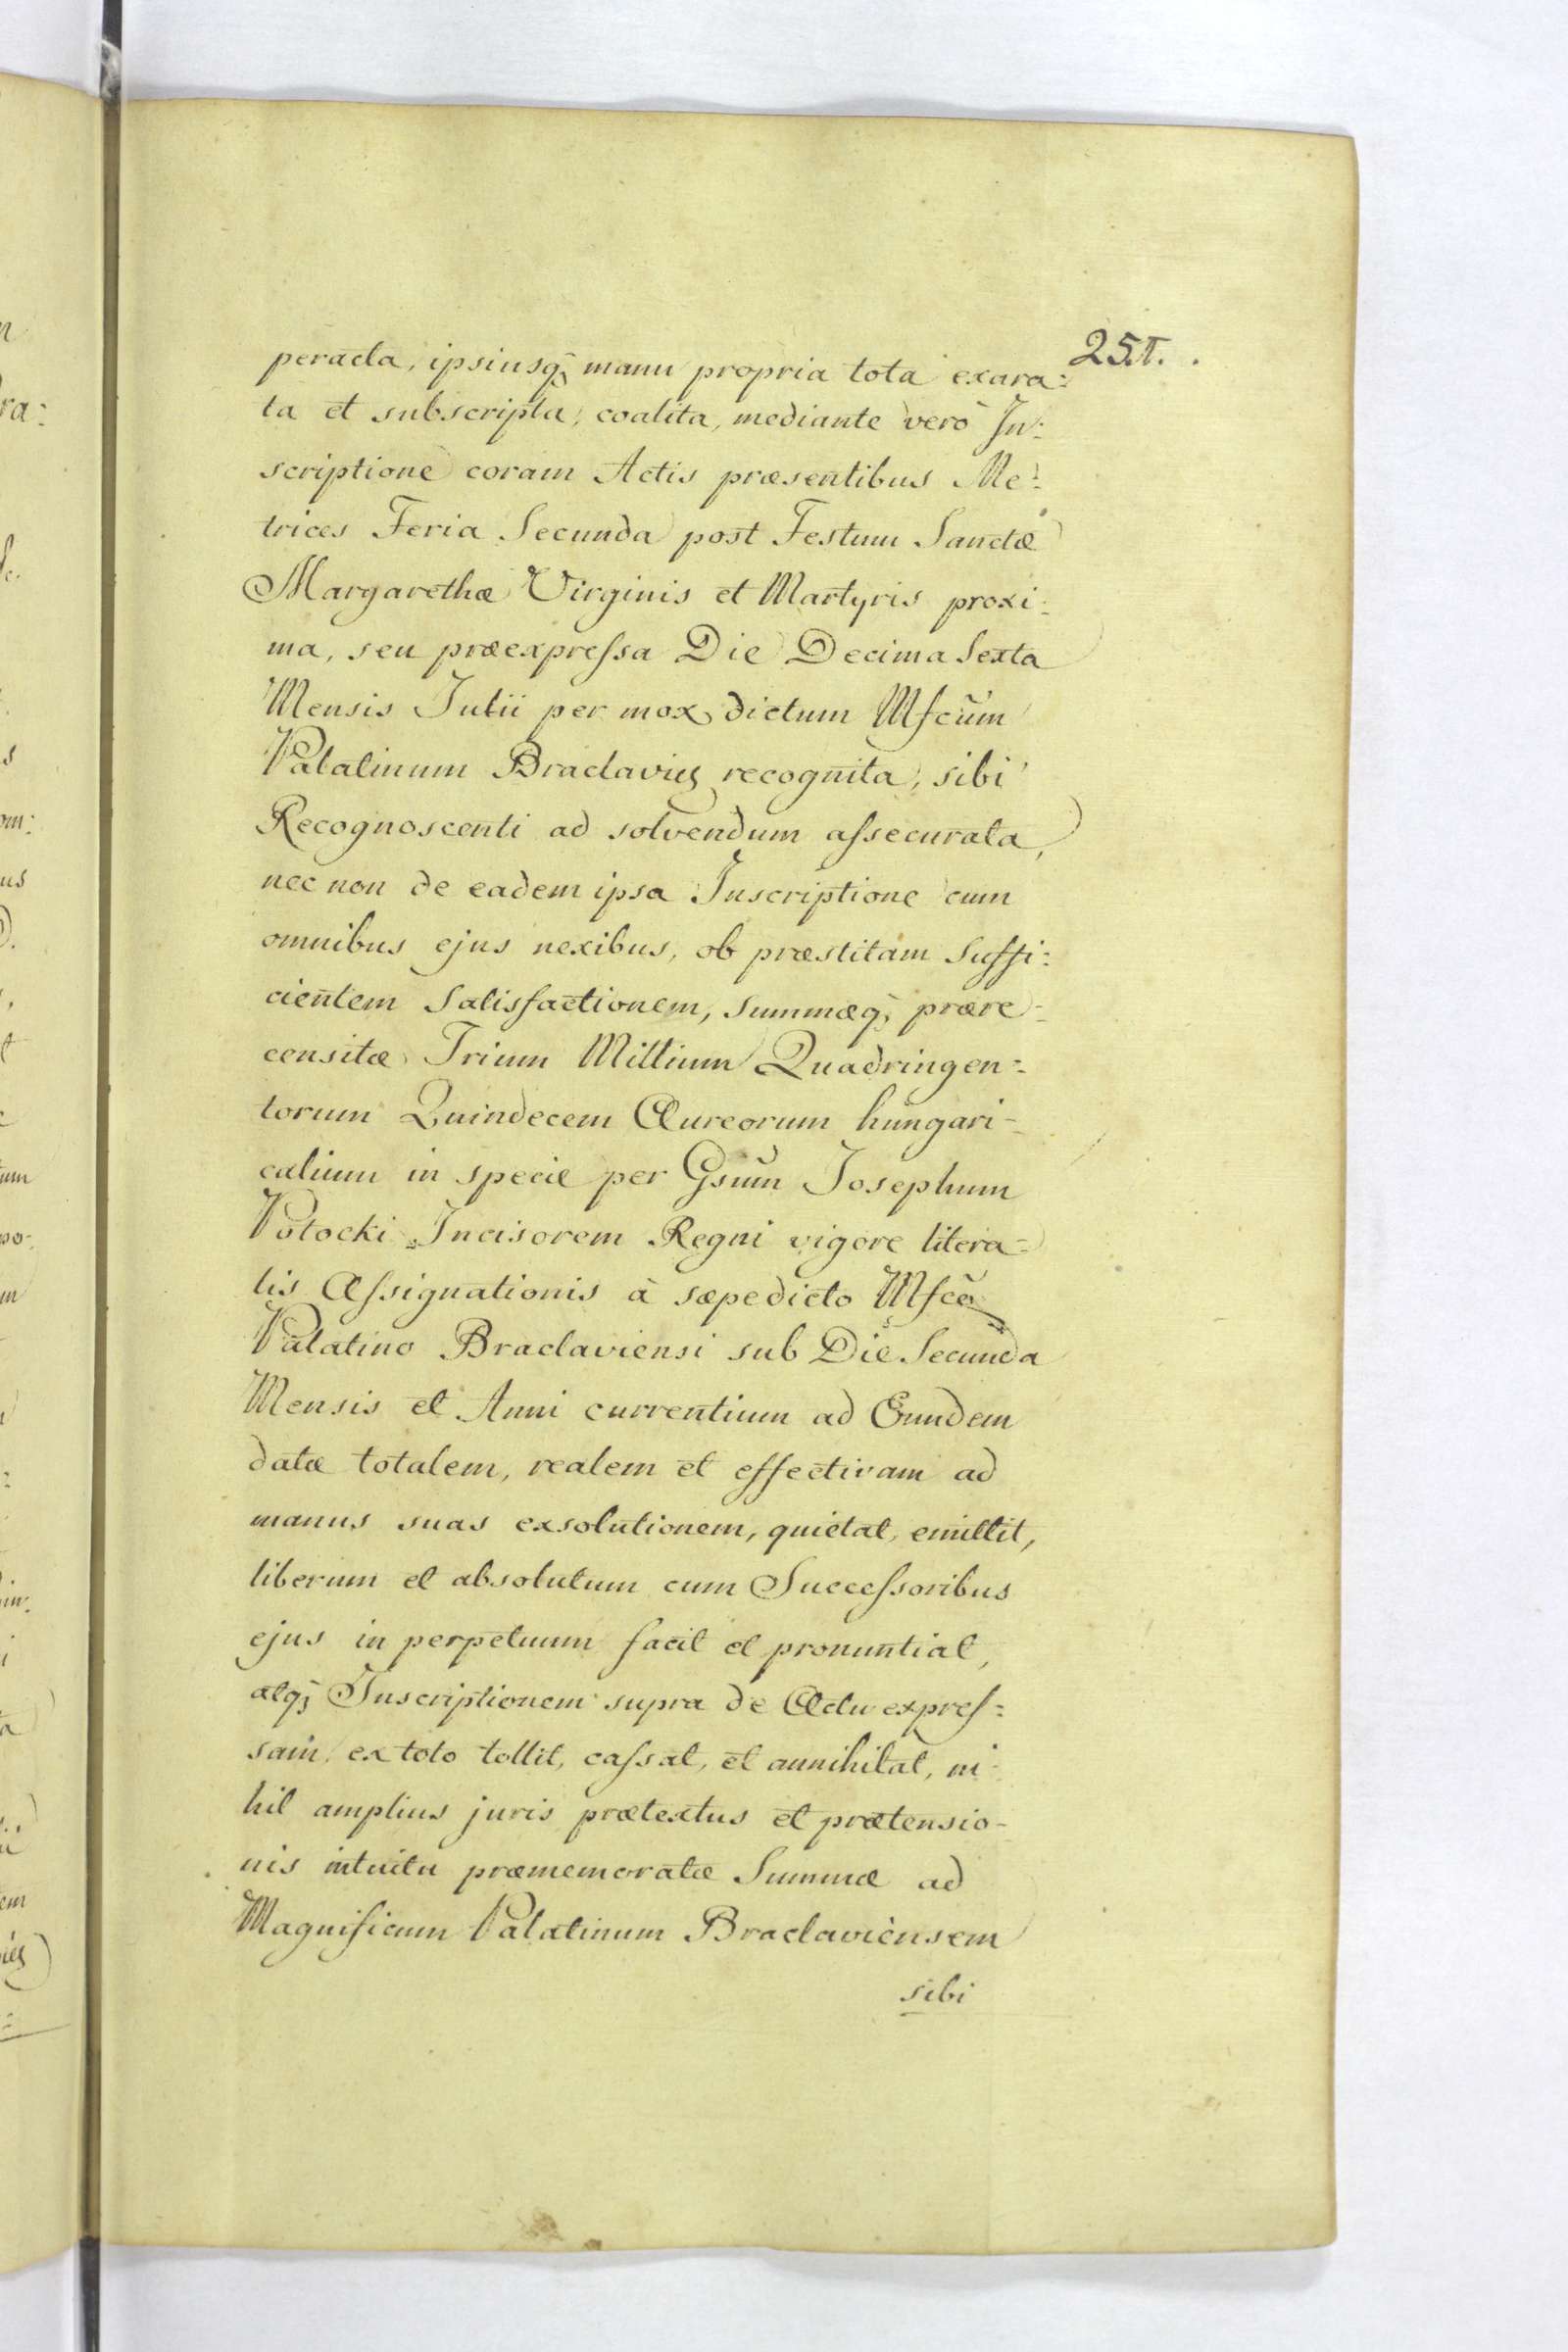 251.
peracta, ipsiusq; manu propria tota exara:
ta et subscripta, coalita, mediante vero In:
scriptione coram Actis præsentibus Me:
trices Feria Secunda post Festum Sanctæ
Margarethæ Virginis et Martyris proxi:
ma, seu præexpressa Die Decima Sexta
Mensis Julii per mox dictum Mfcum
Palatinum Braclavien recognita, sibi
Recognoscenti ad solvendum assecurata,
nec non de eadem ipsa Inscriptione cum
omnibus ejus nexibus, ob præstitam suffi:
cientem Satisfactionem, Summæq; prære-
censitæ Trium Millium Quadringen:
torum Quindecem Aureorum hungari-
calium in specie per Gsum Josephum
Potocki Incisorem Regni vigore litera-
lis Assignationis à sæpedicto Mfco
Palatino Braclaviensi sub Die Secunda
Mensis et Anni currentium ad Eundem
datæ totalem, realem et effectivam ad
manus suas exsolutionem, quietat, emittit,
liberum et absolutum cum Successoribus
ejus in perpetuum facit et pronuntiat,
atq; Inscriptionem supra de Actu expres:
sam ex toto tollit, cassat, et annihilat, ni-
hil amplius juris prætextus et prætensio-
nis intuitu præmemoratæ Summæ ad
Magnificum Palatinum Braclaviensem
sibi